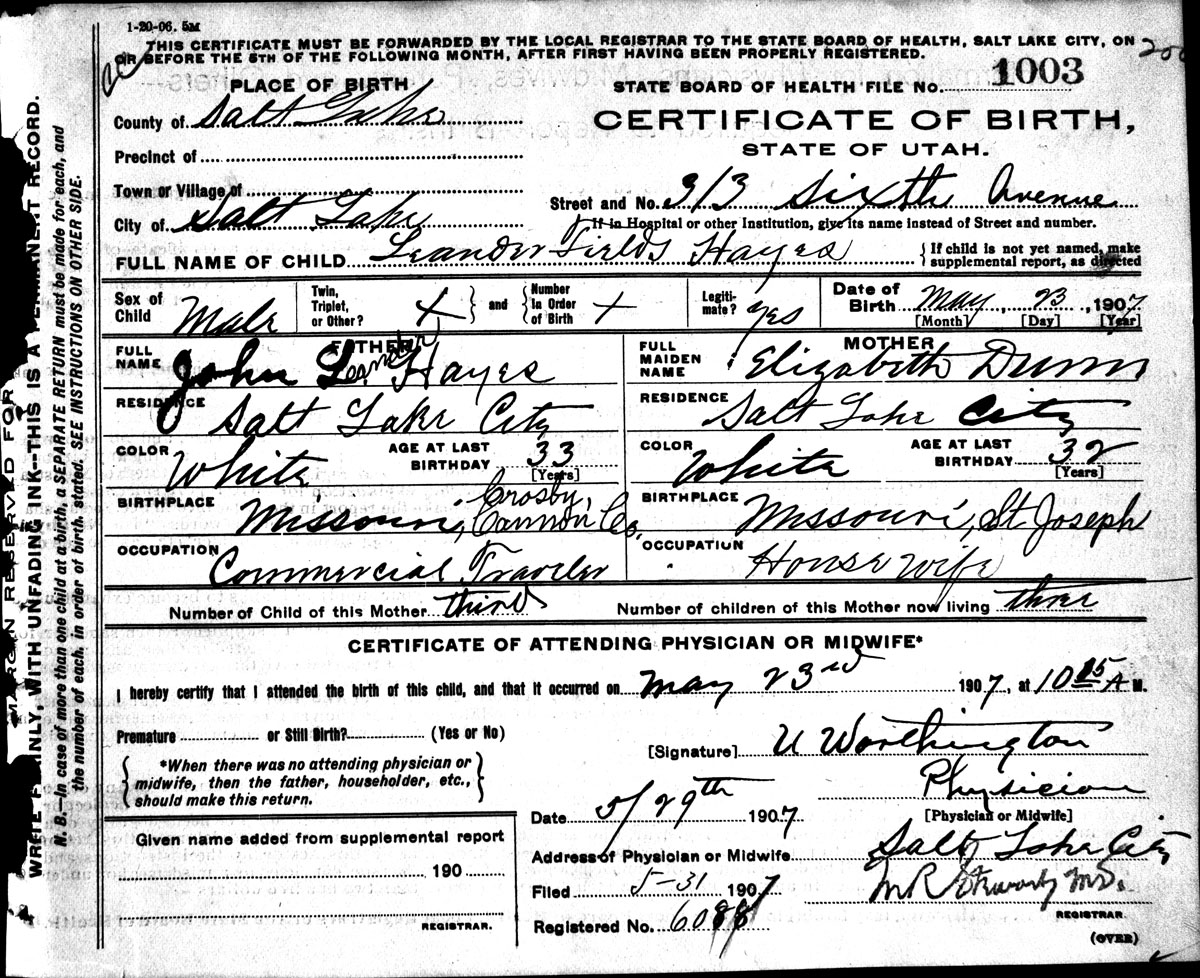 1-20-06. 5M
THIS CERTIFICATE MUST BE FORWARDED BY THE LOCAL REGISTRAR TO THE STATE BOARD OF HEALTH, SALT LAKE CITY, ON
OR BEFORE THE 5TH OF THE FOLLOWING MONTH, AFTER FIRST HAVING BEEN PROPERLY REGISTERED.
PLACE OF BIRTH
County of Salt Lake
Precinct of
Town or Village of
City of Salt Lake
STATE BOARD OF HEALTH FILE NO. 1003
CERTIFICATE OF BIRTH,
STATE OF UTAH.
Street and No. 313 Sixth Avenue
If in Hospital or other Institution, give its name instead of Street and number.
FULL NAME OF CHILD Leander Fields Hayes
If child is not yet named, make
supplemental report, as directed
Sex of Child Male
Twin, Triplet, or Other? X and Number In Order of Birth X
Legitimate? Yes
Date of Birth May, 23, 1907
[Month] [Day] [Year]
FATHER
FULL NAME John Leander Hayes
RESIDENCE Salt Lake City
COLOR White AGE AT LAST BIRTHDAY 33
[Years]
BIRTHPLACE Missouri, Crosby, Co.
OCCUPATION Commercial Traveler
MOTHER
FULL MAIDEN NAME Elizabeth Dunn
RESIDENCE Salt Lake City
COLOR White AGE AT LAST BIRTHDAY 32
[Years]
BIRTHPLACE Missouri, St Joseph
OCCUPATION House wife
Number of Child of this Mother third Number of children of this Mother now living three
CERTIFICATE OF ATTENDING PHYSICIAN OR MIDWIFE*
I hereby certify that I attended the birth of this child, and that it occurred on May 23rd 1907, at 10 15 A M.
Premature or Still Birth? (Yes or No)
*When there was no attending physician or
midwife, then the father, householder, etc.,
should make this return.
[Signature] U Worthington
Physician
[Physician or Midwife]
Date 5/29th 1907
Address of Physician or Midwife Salt Lake City
Given name added from supplemental report
190
REGISTRAR.
Filed 5-31 1907
Registered No. 6088
M.D.
REGISTRAR.
(OVER)
MARGIN RESERVED FOR
WRITE PLAINLY, WITH UNFADING INK—THIS IS A PERMANENT RECORD.
N. B.—In case of more than one child at a birth, a SEPARATE RETURN must be made for each, and
the number of each, in order of birth, stated. SEE INSTRUCTIONS ON OTHER SIDE.